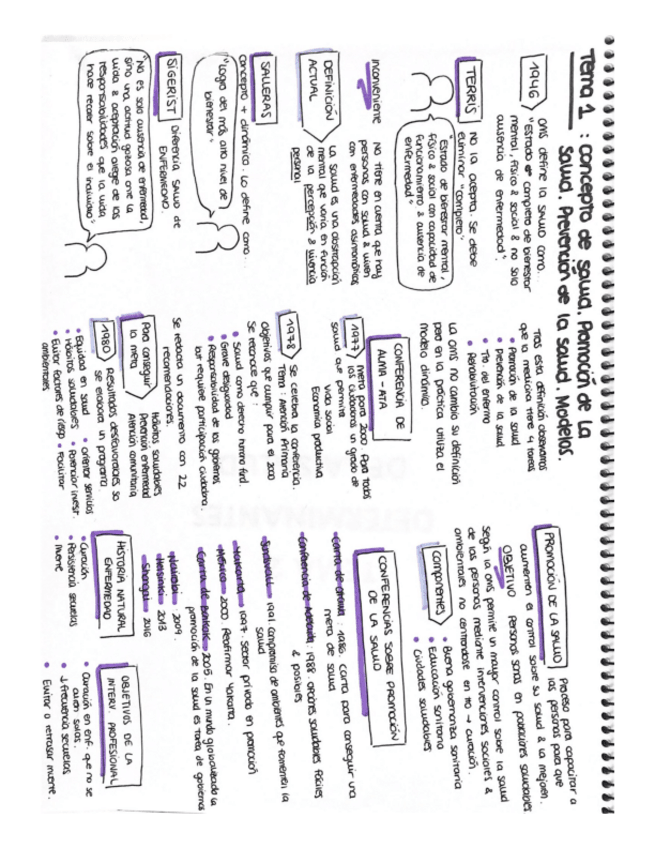 Tema 1 : Concepto de salud. Promoción de la
Salud. Prevención de la salud. Modelos.
1946
OMS define la SALUD como...
"Estado de completo de bienestar
mental, físico & social & no solo
ausencia de enfermedad".
TERRIS
No la acepta. Se debe
eliminar "completo"
"Estado de bienestar mental,
físico & social con capacidad de
funcionamiento & ausencia de
enfermedad"
Inconveniente
No tiene en cuenta que hay
personas con salud & viven
con enfermedades asintomáticas
DEFINICIÓN
ACTUAL
La salud es una abstracción
mental que varía en función
de la percepción & vivencia
personal
SALLERAS
Concepto + dinámico. Lo define como...
"Logro del más alto nivel de
bienestar"
SIGERIST
Diferencia SALUD de
ENFERMEDAD.
"No es solo ausencia de enfermedad,
sino una actitud gozosa ante la
vida & aceptación alegre de las
responsabilidades que la vida
hace recaer sobre el individuo"
Tras esta definición observamos
que la medicina tiene 4 tareas
Promoción de la salud
Prevención de la salud
Tto del enfermo
Rehabilitación
La OMS no cambia su definición
pero en la práctica utiliza el
modelo dinámico.
CONFERENCIA DE
ALMA-ATA
1977
Meta para 2000: Para todos
los ciudadanos un grado de
salud que permita
Vida social
Económica productiva
1978
Se celebra la conferencia.
Tema: Atención Primaria
Objetivos que cumplir para el 2000
Se reconoce que:
Salud como derecho humano fund.
Grave desigualdad
Responsabilidad de los gobiernos
Les requiere participación ciudadana.
Se redacta un documento con 22
recomendaciones.
Para conseguir
la meta
Hábitos saludables
Prevención enfermedad
Atención comunitaria
1980
Resultados desfavorables so
se elabora un programa.
Equidad en salud
Orientar servicios
Hábitos saludables
Potenciar invest.
Evitar factores de riesgo
Facilitar
ambientales
PROMOCIÓN DE LA SALUD
Proceso para capacitar a
las personas para que
aumenten el control sobre su salud & la mejoren.
OBJETIVO Personas sanas en poblaciones saludables
Según la OMS permite un mayor control sobre la salud
de las personas mediante intervenciones sociales &
ambientales no centrándose en tto → curación.
Componentes
Buena gobernanza sanitaria
Educación sanitaria
Ciudades saludables
CONFERENCIAS SOBRE PROMOCIÓN
DE LA SALUD
Carta de Ottawa: 1986. Carta para conseguir una
meta de salud
Conferencia de Adelaida: 1988. Opciones saludables fáciles
& posibles
Sundsvall: 1991. Compromiso de ambientes que fomenten la
salud
Yakarta: 1997. Sector privado en promoción
México: 2000. Reafirmar Yakarta.
Carta de Bankok: 2005. En un mundo globalizado la
promoción de la salud es tarea de gobiernos
Nairobi: 2009.
Helsinki: 2013
Shangai: 2016
HISTORIA NATURAL
ENFERMEDAD
Curación
Persistencia secuelas
Muerte
OBJETIVOS DE LA
INTERV. PROFESIONAL
Curación en enf. que no se
curen solas.
↓ frecuencia secuelas
Evitar o retrasar muerte.